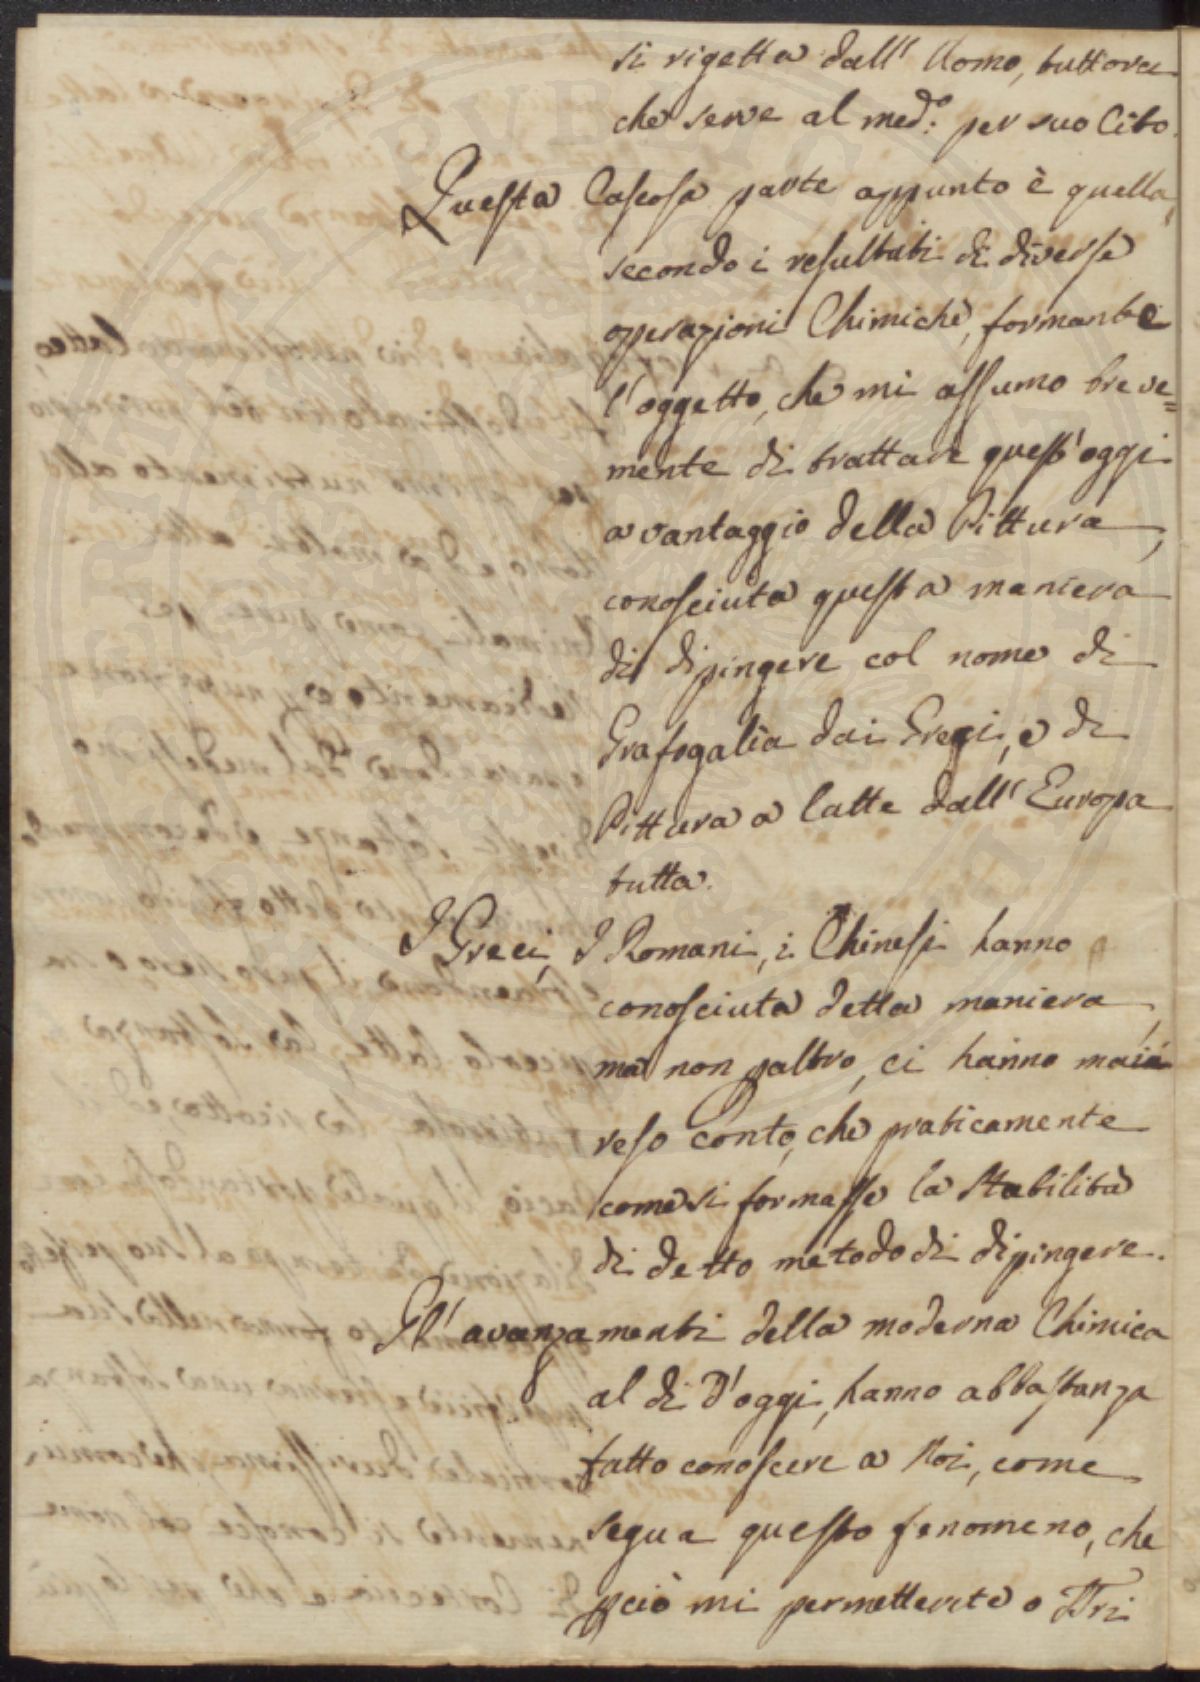 si rigetta dall' Uomo, tuttora
che serve al med.o per suo Cibo.
Questa Caseosa parte appunto è quella,
secondo i resultati di diverse
operazioni Chimiche, formante
l'oggetto, che mi assumo breve=
mente di trattare quest'oggi
a vantaggio della Pittura,
conosciuta questa maniera
di dipingere col nome di
Grafogalia dai Greci, e di
Pittura a latte dall'Europa
tutta.
I Greci, I Romani, i Chinesi hanno
conosciuta detta maniera,
ma non paltro, ci hanno mai
reso conto, che praticamente
come si formasse la Stabilità
di detto metodo di dipingere.
Gl'avanzamenti della moderna Chimica
al dì d'oggi, hanno abbastanza
fatto conoscere a Noi, come
segua questo fenomeno, che
pciò mi permetterete o